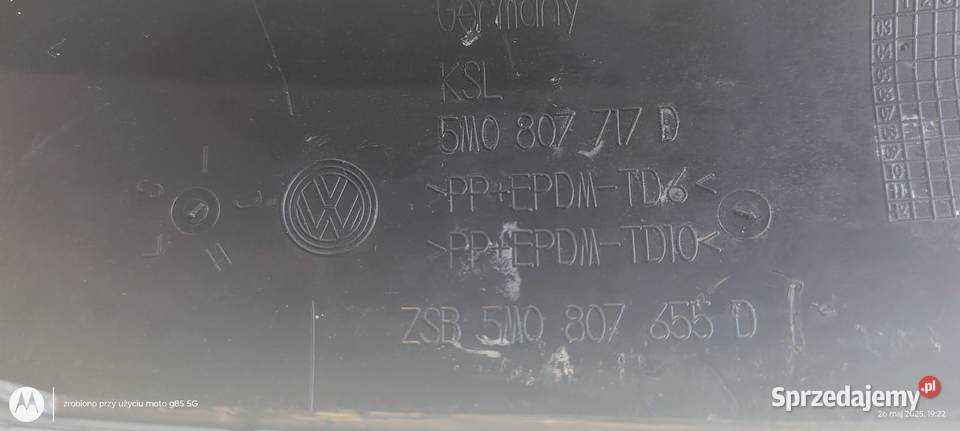 Germany
KSL
5M0 807 717 D
>PP+EPDM-TD6<
>PP+EPDM-TD10<
ZSB 5M0 807 655 D
03
04
05
06
07
08
09
10
11
12
zrobiono przy użyciu moto g85 5G
Sprzedajemy.pl
26 maj 2025, 19:22